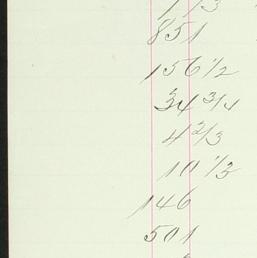 851
156 1/2
34 3/4
4 2/3
10 1/3
146
501